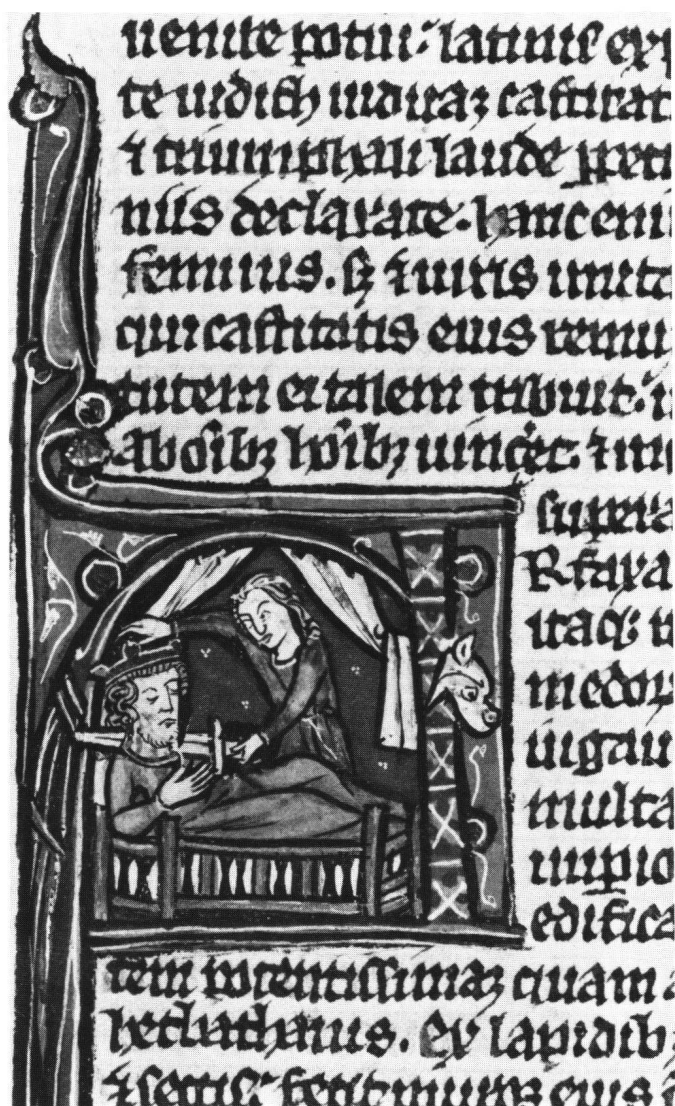 uenire potui· latinis exp
te iudith uiduaꝫ castitat
⁊ triumphali laude ꝑpetu
niis declarate. hanc eni
feminis. sꝫ ⁊ uiris imita
qui castitatis eius remu
tutem ei talem tribuit. u
ab oı̅bꝫ hoı̅bꝫ uinc̅et. ⁊ in
supera
Rfaxa
itaqꝫ r
medor
iugau
multa
imꝑio
edifica
tem potentissimaꝫ quam a
hecbathanis. Ex lapidib
⁊ sectis. fecit muros eius